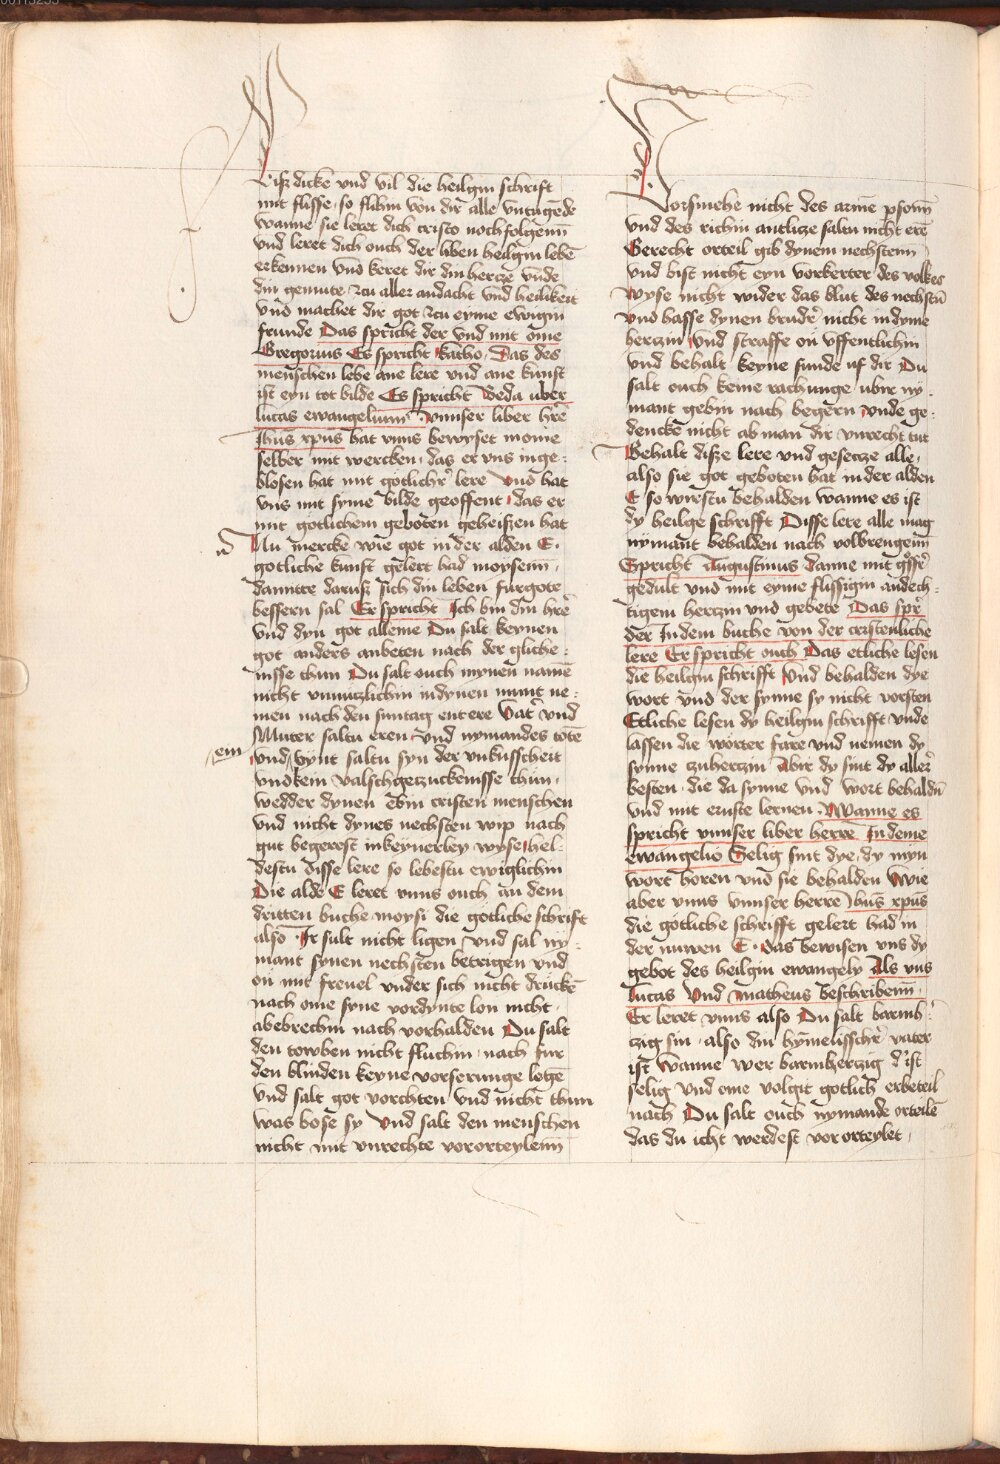 Liß dicke und vil die heilgin schrift
mit flisse, so flihin von dir alle untugende
wanne sie leret dich cristo nochfolgenn
und leret dich ouch der liben heilgin lebē
erkennen und keret dir din hercze unde
din gemute zcu aller andacht und heilikeit
und machet dir got zcu eyme ewigin
frunde Das spricht der und mit ome
Gregorius Es spricht katho, Das des
menschen lebē ane lere und ane kunst
ist eyn tot bilde Es spricht Beda uber
lucas ewangelium Unnser liber hrē
jhūs xpus hat unns bewyset
selber mit wercken, das er uns inge:
blosen hat mit gotlichr̄ lere Und hat
uns mit syme bilde geoffent, das er
mit gotlichem geboten geheißen hat
Nu mercke wie got in der alden E.
gotliche kunst gelert had moysenn,
danntte daruß sich din leben furgote
bessern sal Er spricht Ich bin din hrē
und dyn got alleine Du salt keynen
got anders anbeten nach der gliche:
nisse thun Du salt ouch mynen namē
nicht unnuczlichin in dynen munt ne:
men nach den suntag entere Vatr̄ und
Muter saltu eren Und nymandes totē
em und vynt saltu syn der unkusscheit
und kein valschgezuckenisse thun,
wedder dynen ebin cristen menschen
und nicht dynes nechsten wip nach
gut begerest in keynerley wyse, hel:
destu disse lere so lebestu ewiglichin
Die alde E leret unns ouch an dem
dritten buche moysi die gotliche schrift
also Ir sult nicht ligen Und sal ny:
mant synen nechsten betrigen und
on mit freuel under sich nicht druckē
nach ome syne vordynte lon nicht,
abebrechin nach vorhalden Du salt
den towben nicht fluchin, nach fur
den blinden keyne vorserunge legē
und salt got vorchten und nicht thun
was bose sy Und salt den menschen
nicht mit unrechte vororteylenn
Vorsmehe nicht des arme psonn
und des richin antlicze saltu nicht erē
Gerecht orteil gib dynem nechstenn
und bist nicht eyn vorkerter des volkes
Wyse nicht wider das blut des nechstē
und hasse dynen brudr̄ nicht in dyme
herczin Und straffe on uffentlichin
und behalt keyne sunde uf dir Du
salt ouch keine rachunge ubir ny:
mant gebin nach begern Unde ge:
dencke nicht ab man dir unrecht tut
Behalt diße lere und gesecze alle,
also sie got geboten hat in der alden
E so wirstu behalden wanne es ist
dy heilge schrifft Disse lere alle mag
nymant behalden nach volbrengenn
Spricht Augustinus danne mit
gedult und mit eyme flissigin andech:
tigem herczin und gebete Das spr̄
der In dem buche von der cristenliche
lere Er spricht ouch Das etliche lesen
die heilgin schrifft Und behalden dye
wort und der synne sy nicht vorsten
Etliche lesen dy heilgin schrifft unde
lassen die worter fare und nemen dy
synne czu herczin Abir dy sint dy allerͤ
besten, die da synne und wort behaldn̄
und mit ernste lernen, Wanne es
spricht unnser liber herre In deme
ewangelio Selig sint dye, dy myn
wort horen und sie behalden Wie
aber unns unnser herre Jhūs xpus
die gotliche schrifft gelert had in
der nuwen E, das bewisen uns dy
gebot des heilgin ewangely Als uns
lucas Und matheus beschribenn,
Er leret unns also Du salt barmh:
tzig sin, also din hymelisschr̄ vater
ist Wanne wer barmherczig ist d'ist
selig Und ome volgit gotlich erbeteil
nach Du salt ouch nymande orteilē
das du icht werdest vororteylet,